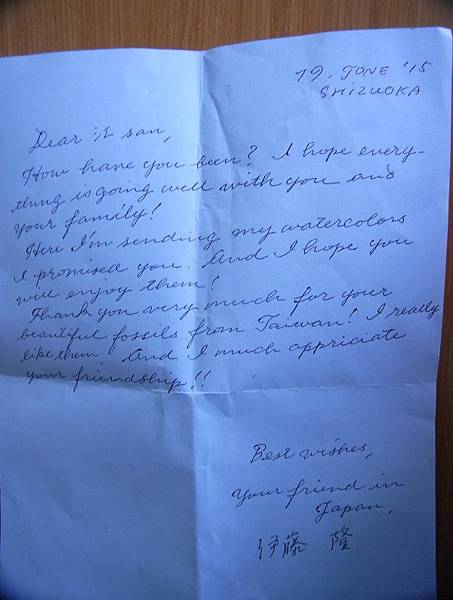 19. JUNE '15
SHIZUOKA
Dear 江 san,
How have you been? I hope every-
thing is going well with you and
your family!
Here I'm sending my watercolors
I promised you. And I hope you
will enjoy them!
Thank you very much for your
beautiful fossils from Taiwan! I really
like them. And I much appriciate
your friendship!!
Best wishes,
Your friend in
Japan,
伊藤 隆